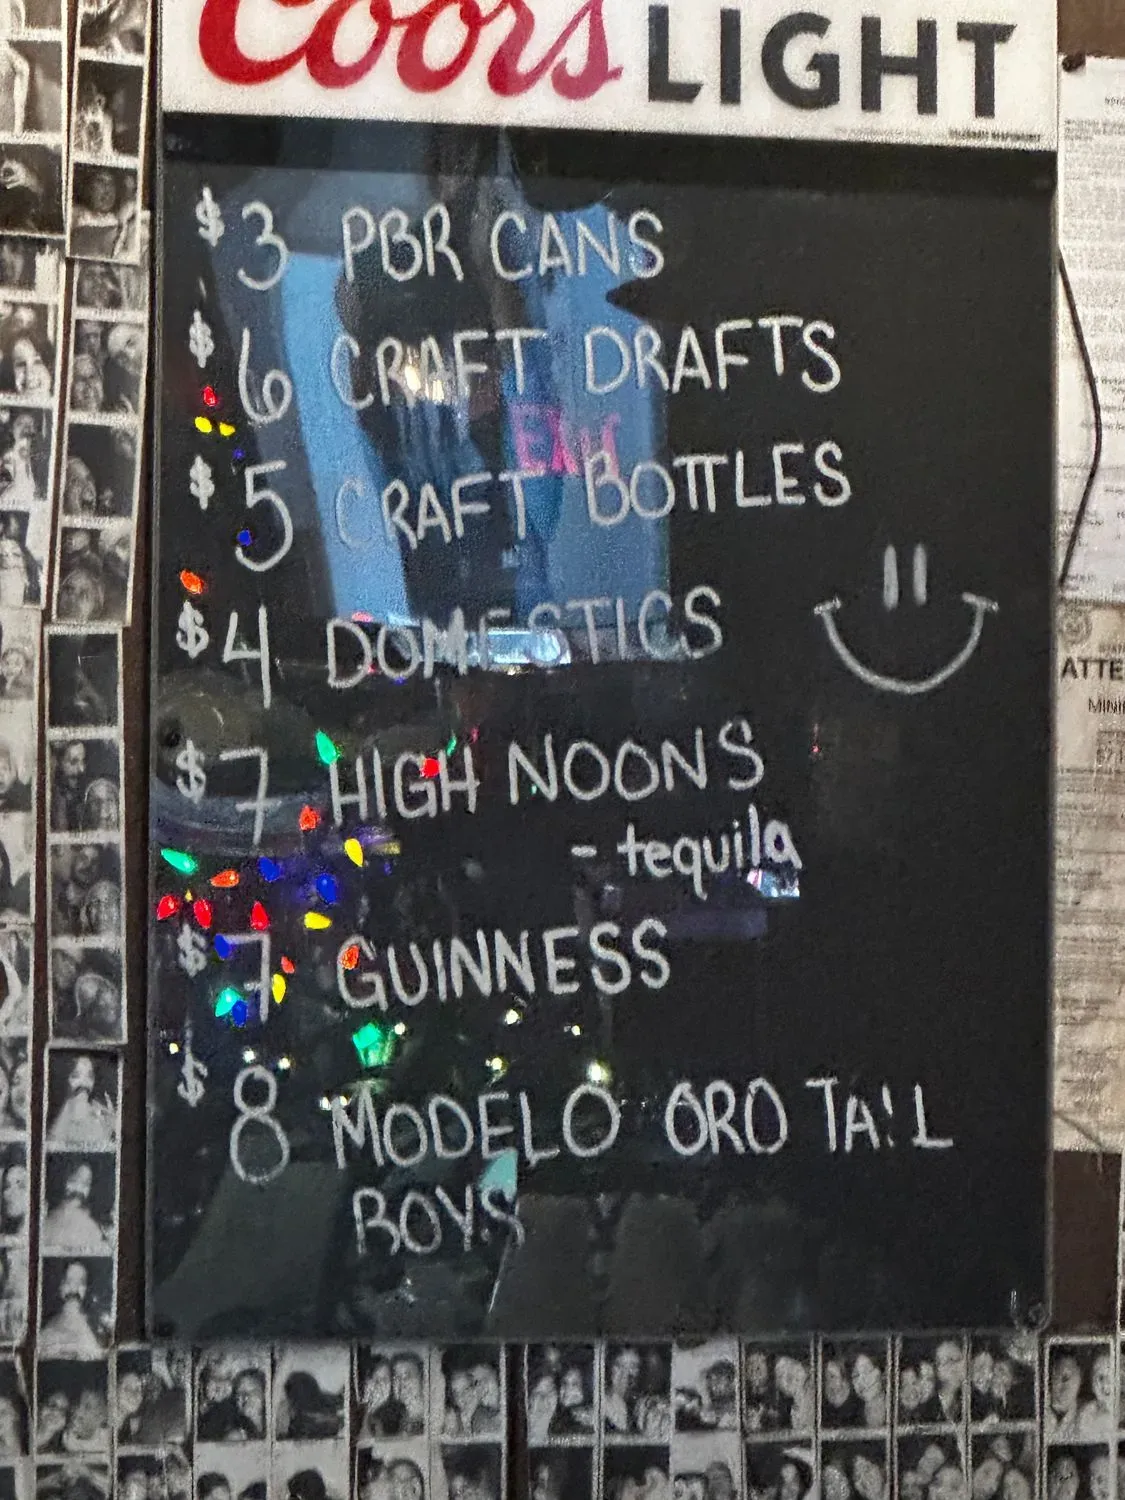 Coors LIGHT
$3 PBR CANS
$6 CRAFT DRAFTS
$5 CRAFT BOTTLES
$4 DOMESTICS
$7 HIGH NOONS
- tequila
$7 GUINNESS
$8 MODELO ORO TALL
BOYS
ATTE
MINI